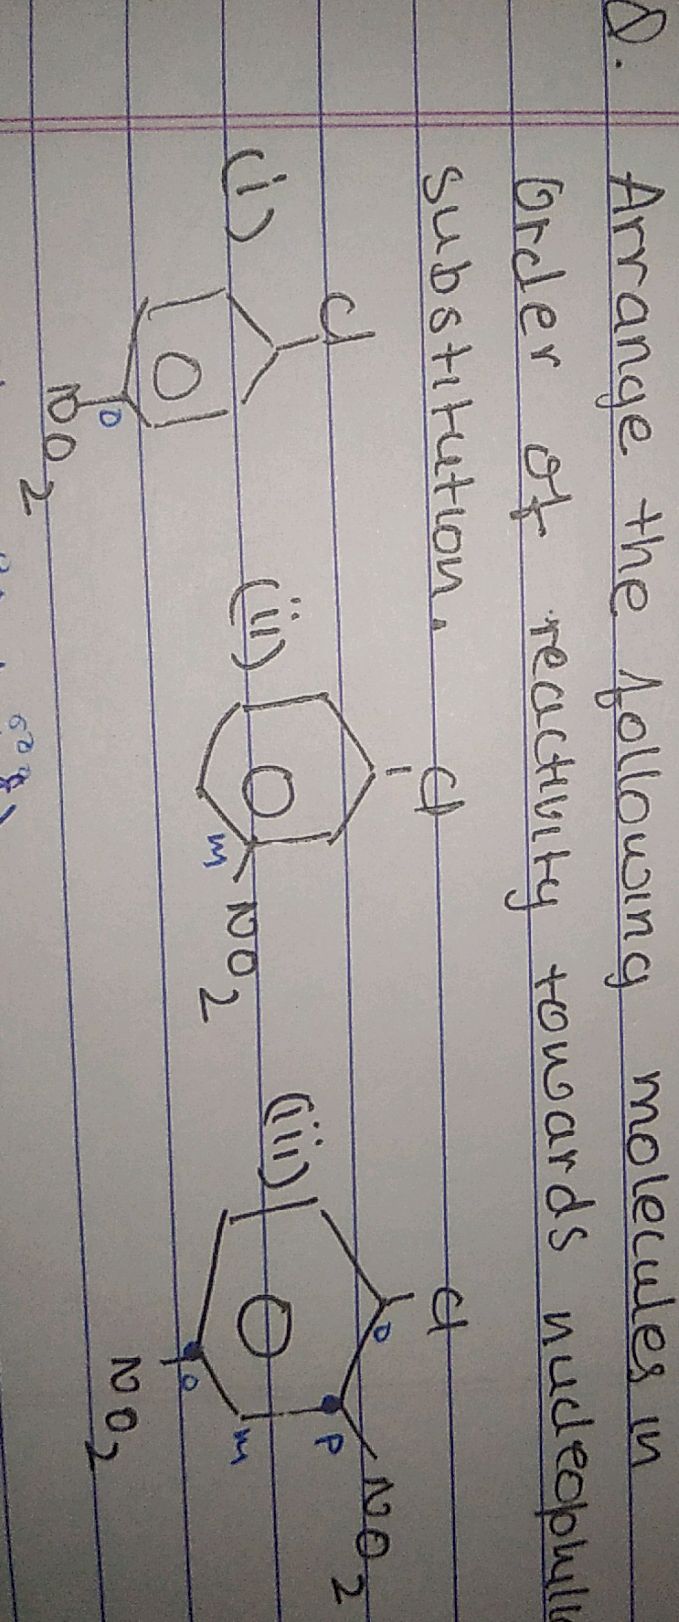 Q. Arrange the following molecules in
Order of reactivity towards
substitution.
(i) Cl
o
NO2
(ii) Cl
m
NO2
(iii) Cl
o
NO2
p
m
o
NO2